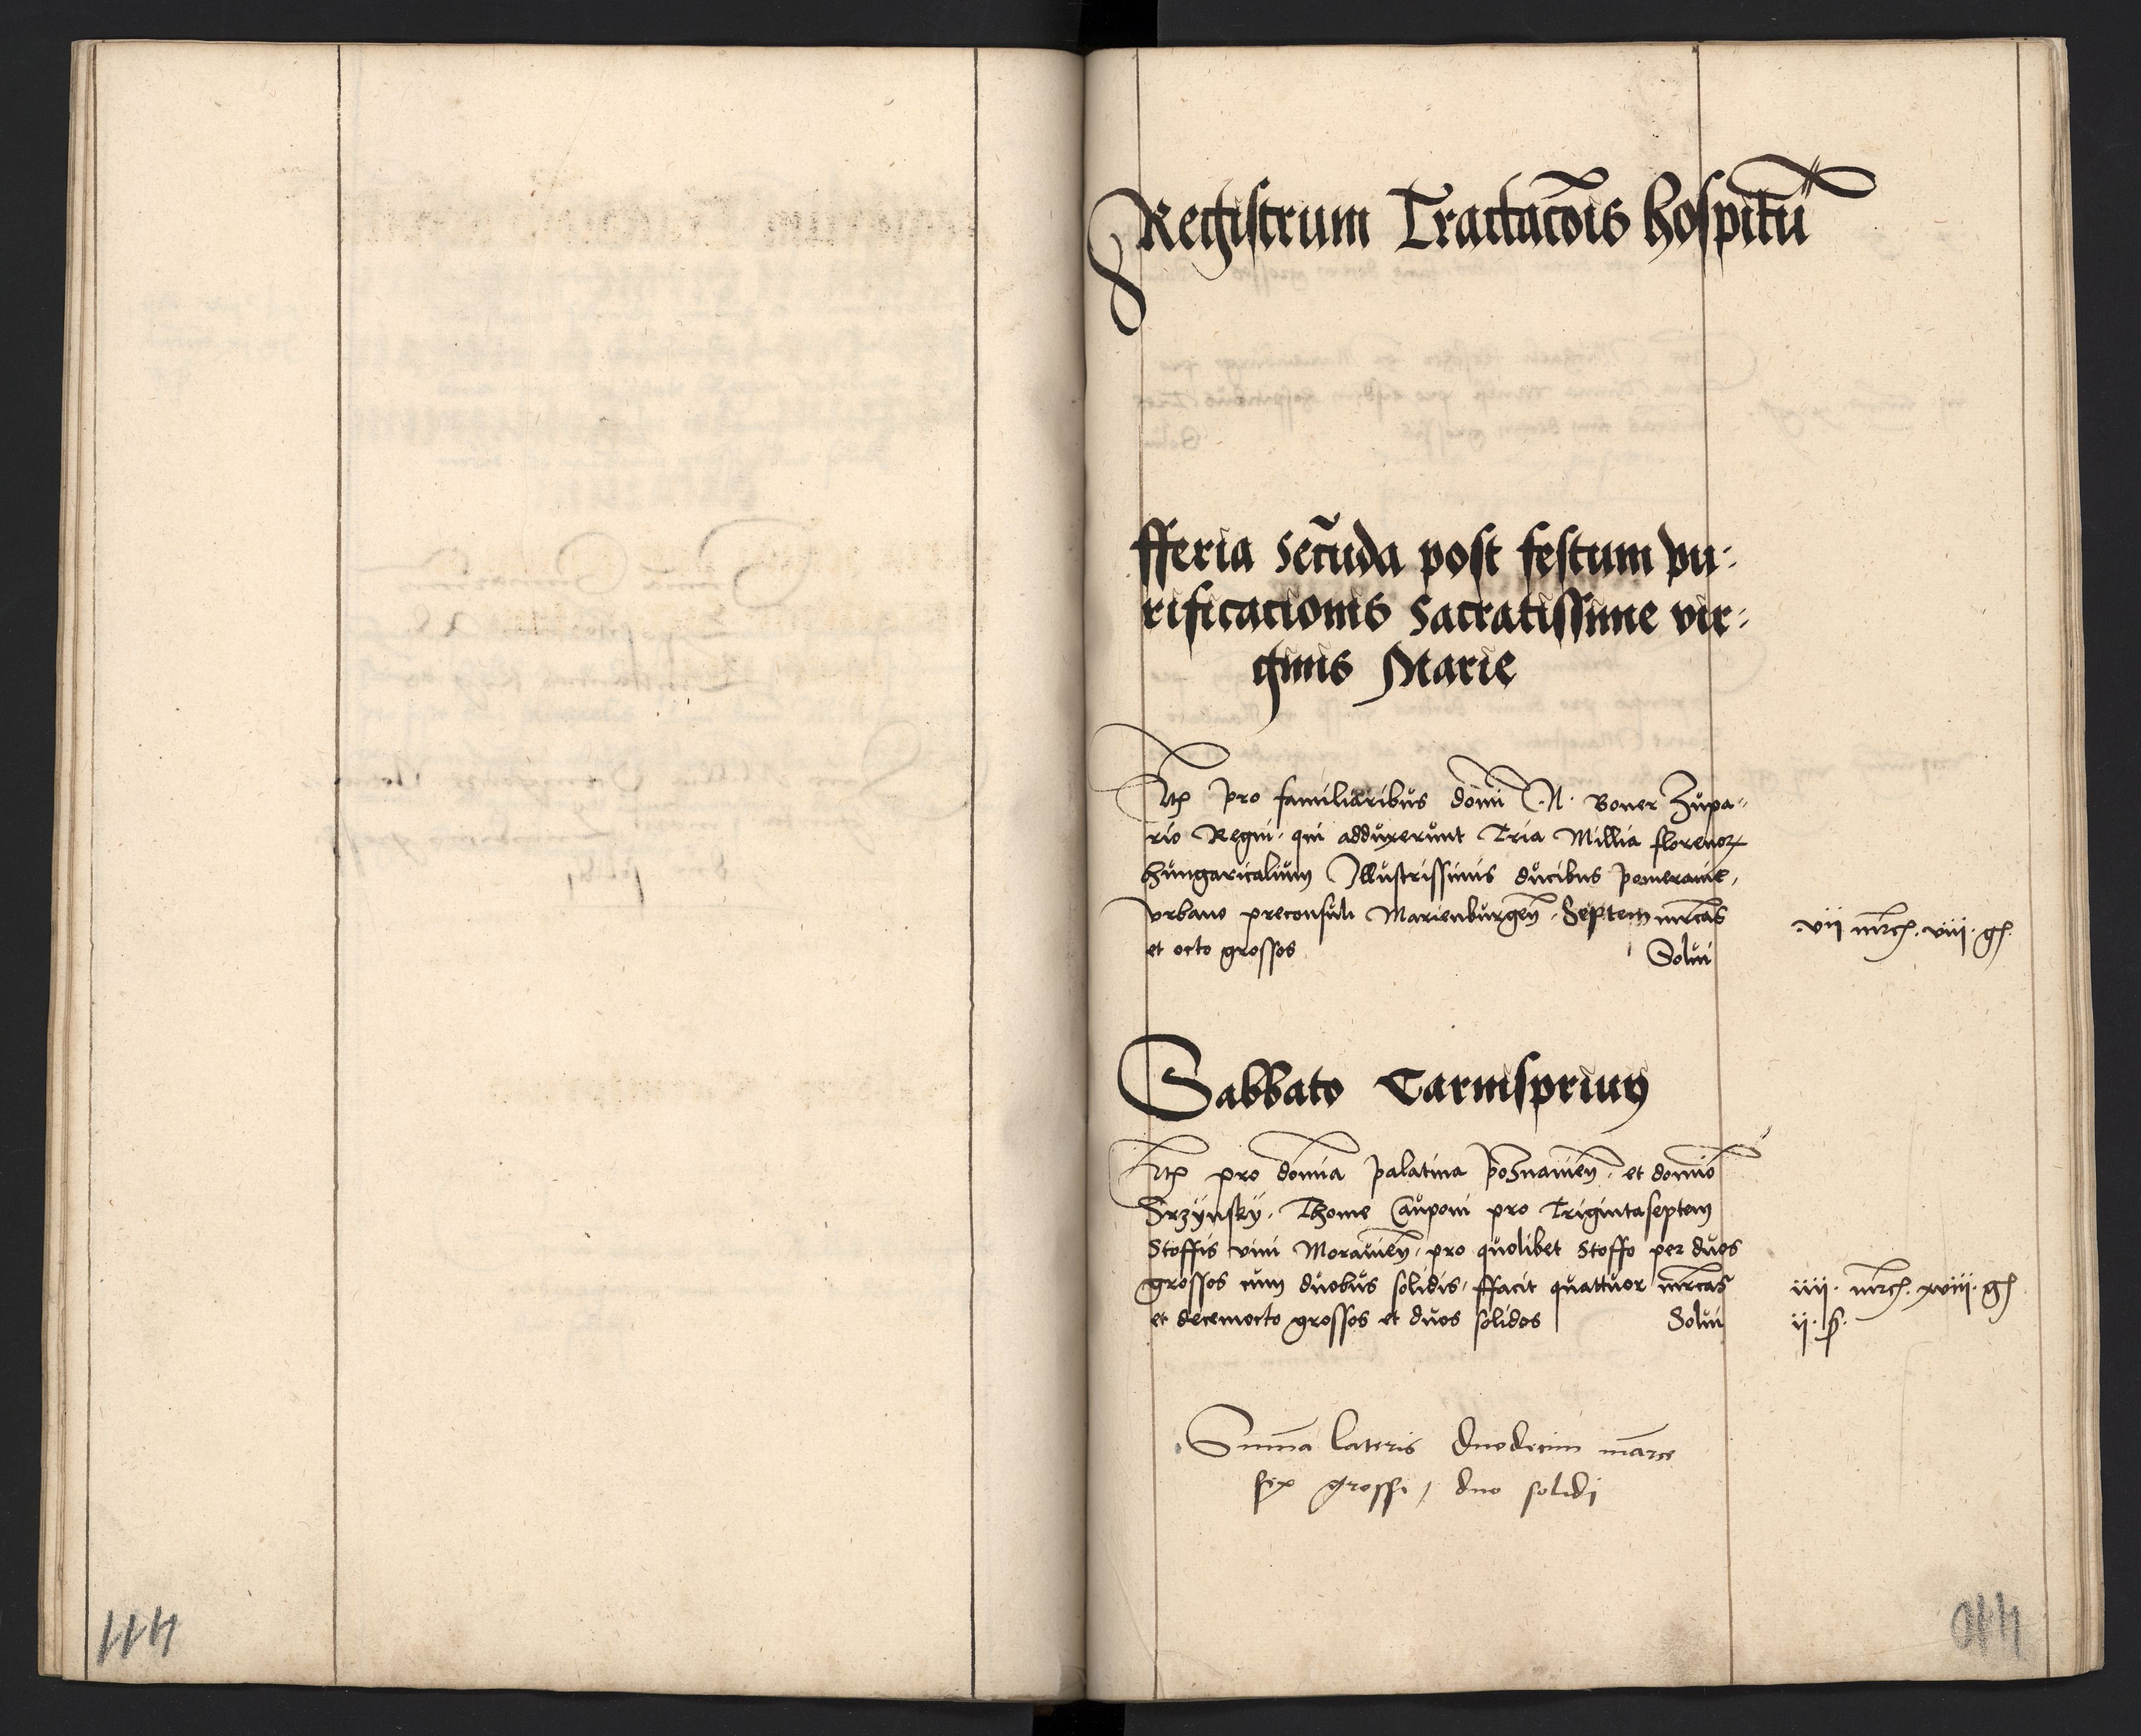 Registrum Tractac̄ois hospitū
fferia Secūda post festum pu:
rificacionis Sacratissime vir:
ginis Marie
Itꝫ pro familiaribus domī N. Boner Zupa-
rio Regni. qui adduxerunt Tria Millia florenoꝝ
hungaricalium Illustrissimis ducibus pomeranie,
vrbano preconsuli Marienburgeñ. Septem mr̄cas
et octo grossos Solui
.vii mr̄cꝭ. viii. gꝭ
Sabbato Carnispriuy
Itꝫ pro domīa palatina poznanieñ. et domīo
Srzynsky. Thome Cauponi pro Trigintaseptem
Stoffis vini Morauieñ, pro quolibet Stoffo per duos
grossos cum duobus solidis, ffacit quattuor mr̄cas
et decemocto grossos et duos solidos Solui
iiij. mr̄cꝭ. xviii. gꝭ
ij. ẜ.
Sum̄a lateris duodecim mārce
sex grossi / duo solidi
411
410